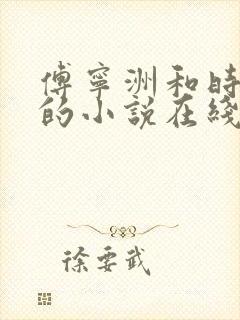 傅寧洲和時
的小說在綫
徐要武